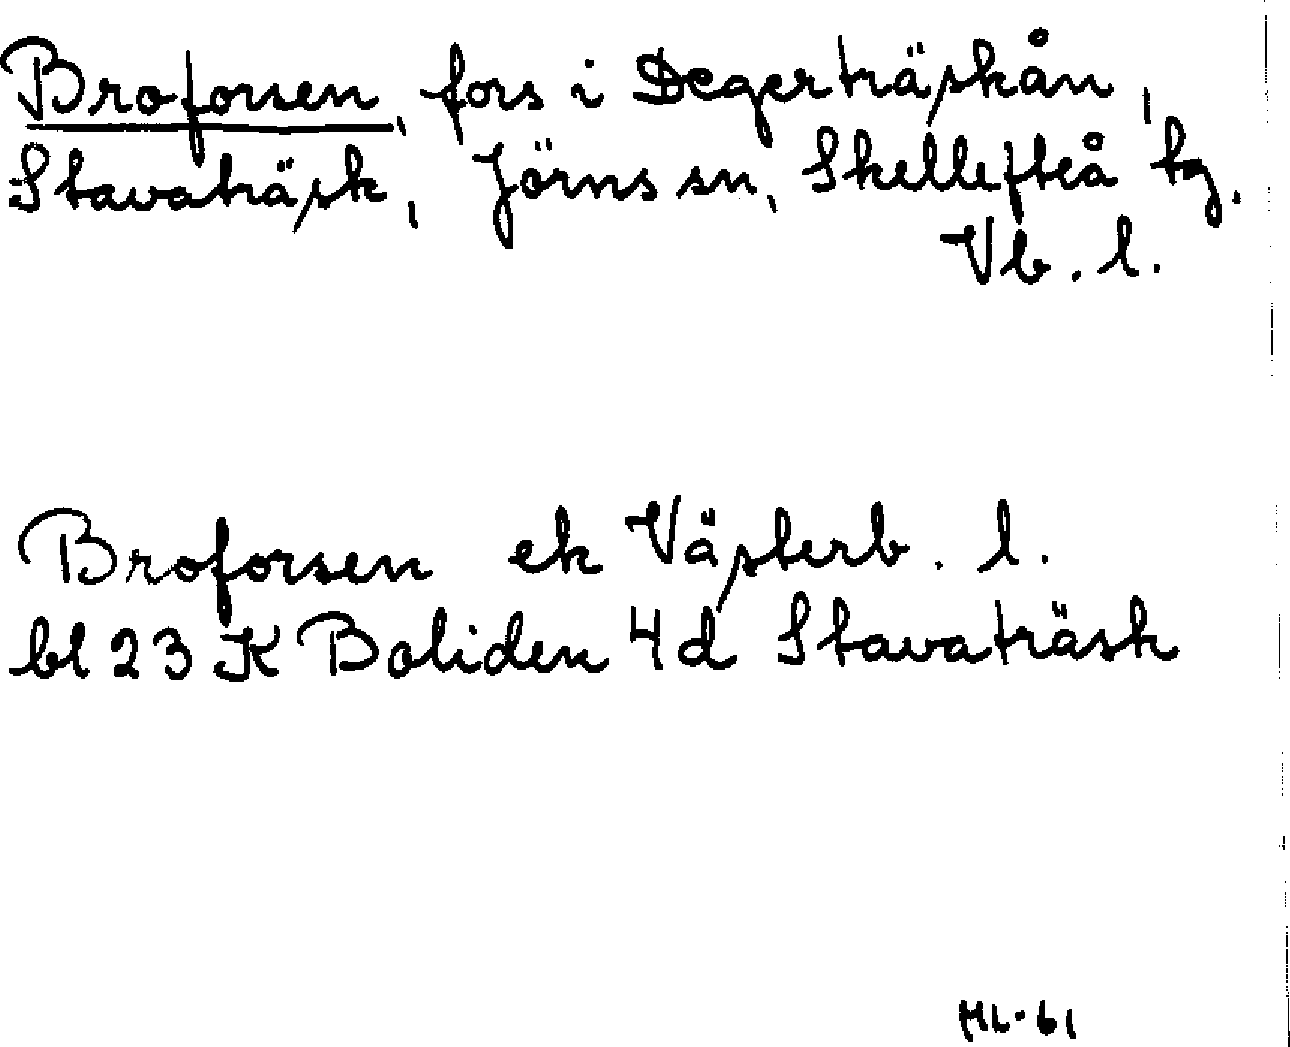 Broforsen, fors i Degerträskån,
Stavaträsk, Jörns sn, Skellefteå tg.
Vb. l.
Broforsen ek Västerb. l.
bl 23 K Boliden 4d Stavaträsk
HL-61